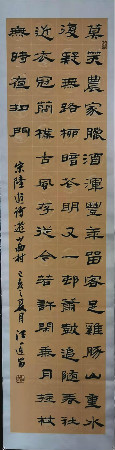 莫笑農家臘酒渾豐年留客足雞豚山重水
復疑無路柳暗花明又一邨簫鼓追隨春社
近衣冠簡樸古風存從今若許閒乘月拄杖
無時夜叩門
宋陸游詩遊山西村 己亥夏月